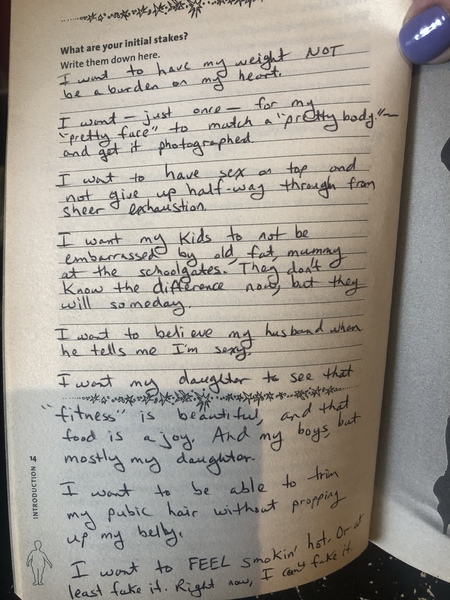 What are your initial stakes?
Write them down here.
I want to have my weight NOT
be a burden on my heart.
I want – just once – for my
"pretty face" to match a "pretty body" –
and get it photographed.
I want to have sex on top and
not give up half-way through from
sheer exhaustion.
I want my kids to not be
embarrassed by old, fat, mummy
at the schoolgates. They don't
know the difference now, but they
will someday.
I want to believe my husband when
he tells me I'm sexy.
I want my daughter to see that
"fitness" is beautiful, and that
food is a joy. And my boys, but
mostly my daughter.
I want to be able to trim
my pubic hair without propping
up my belly.
I want to FEEL smokin' hot. Or at
least fake it. Right now, I can't fake it.
14
INTRODUCTION